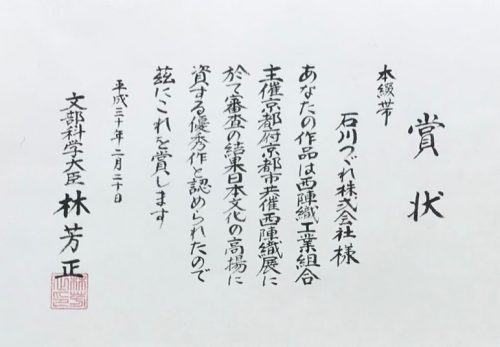 賞状
本綴帯
石川つづれ株式会社様
あなたの作品は西陣織工業組合
主催京都府京都市共催西陣織展に
於て審査の結果日本文化の高揚に
資する優秀作と認められたので
茲にこれを賞します
平成三十年二月二十日
文部科学大臣 林芳正